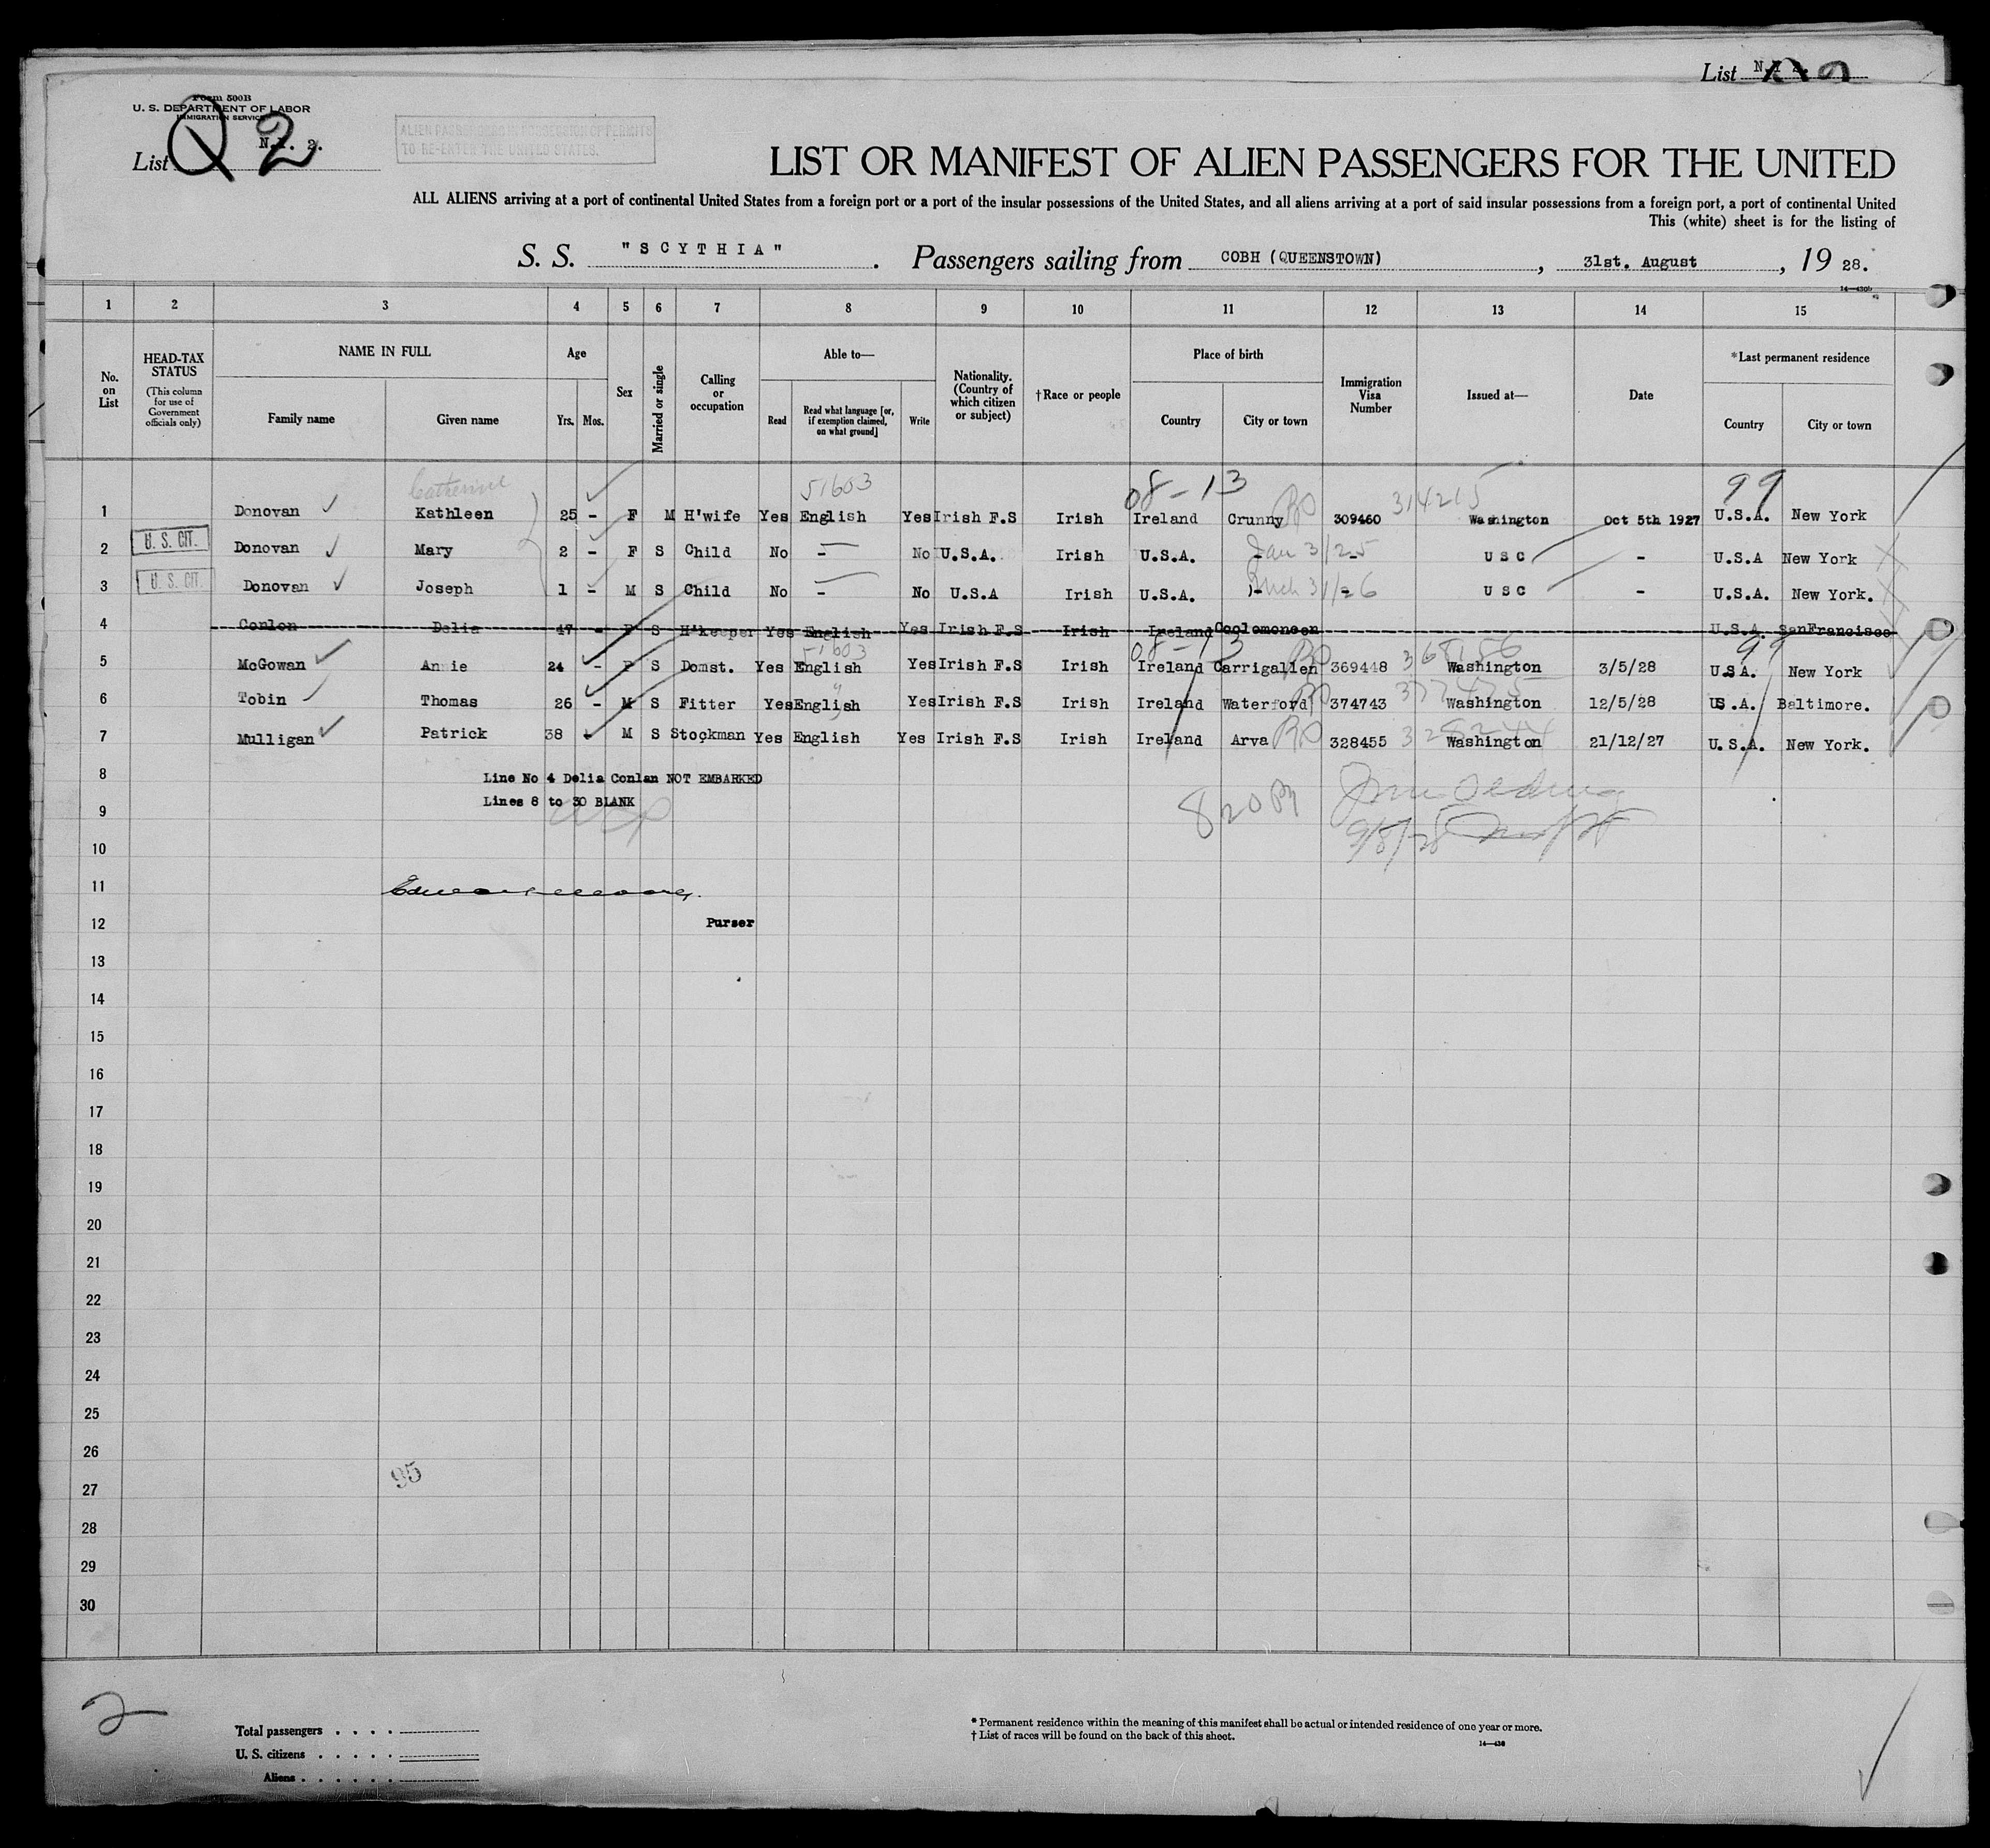 List N.Y 2.
Form 500B
U. S. DEPARTMENT OF LABOR
IMMIGRATION SERVICE
List N.Y. 2.
Q 2
ALIEN PASSENGERS IN POSSESSION OF PERMITS
TO RE-ENTER THE UNITED STATES.
LIST OR MANIFEST OF ALIEN PASSENGERS FOR THE UNITED
ALL ALIENS arriving at a port of continental United States from a foreign port or a port of the insular possessions of the United States, and all aliens arriving at a port of said insular possessions from a foreign port, a port of continental United
This (white) sheet is for the listing of
S. S. "SCYTHIA". Passengers sailing from COBH (QUEENSTOWN), 31st. August, 19 28.
1 2 3 4 5 6 7 8 9 10 11 12 13 14 15
No. on List
HEAD-TAX STATUS
(This column for use of Government officials only)
NAME IN FULL
Family name Given name
Age
Yrs. Mos.
Sex
Married or single
Calling or occupation
Able to—
Read Read what language [or, if exemption claimed, on what ground] Write
Nationality. (Country of which citizen or subject)
†Race or people
Place of birth
Country City or town
Immigration Visa Number
Issued at—
Date
*Last permanent residence
Country City or town
Catherine 51603 08-13 314215 99
1 Donovan Kathleen 25 - F M H'wife Yes English Yes Irish F.S Irish Ireland Crunny 309460 Washington Oct 5th 1927 U.S.A. New York
2 U. S. CIT. Donovan Mary 2 - F S Child No - No U.S.A. Irish U.S.A. Jan 31/25 - U S C - U.S.A New York
3 U. S. CIT. Donovan Joseph 1 - M S Child No - No U.S.A Irish U.S.A. Mch 31/26 - U S C - U.S.A. New York.
4 Conlon Delia 47 - F S H'keeper Yes English Yes Irish F.S Irish Ireland Coolomoneen U.S.A. SanFrancisco
51603 08-13 368156 99
5 McGowan Annie 24 - F S Domst. Yes English Yes Irish F.S Irish Ireland Carrigallen 369448 Washington 3/5/28 U.S.A. New York
6 Tobin Thomas 26 - M S Fitter Yes English Yes Irish F.S Irish Ireland Waterford 374743 Washington 12/5/28 U.S.A. Baltimore.
7 Mulligan Patrick 38 - M S Stockman Yes English Yes Irish F.S Irish Ireland Arva 328455 328244 Washington 21/12/27 U.S.A. New York.
8 Line No 4 Delia Conlan NOT EMBARKED
Lines 8 to 30 BLANK
9
9/8/28
10
11
12 Purser
13
14
15
16
17
18
19
20
21
22
23
24
25
26
95
27
28
29
30
2
Total passengers . . . .
U. S. citizens . . . . .
Aliens . . . . . .
* Permanent residence within the meaning of this manifest shall be actual or intended residence of one year or more.
† List of races will be found on the back of this sheet.
14—430